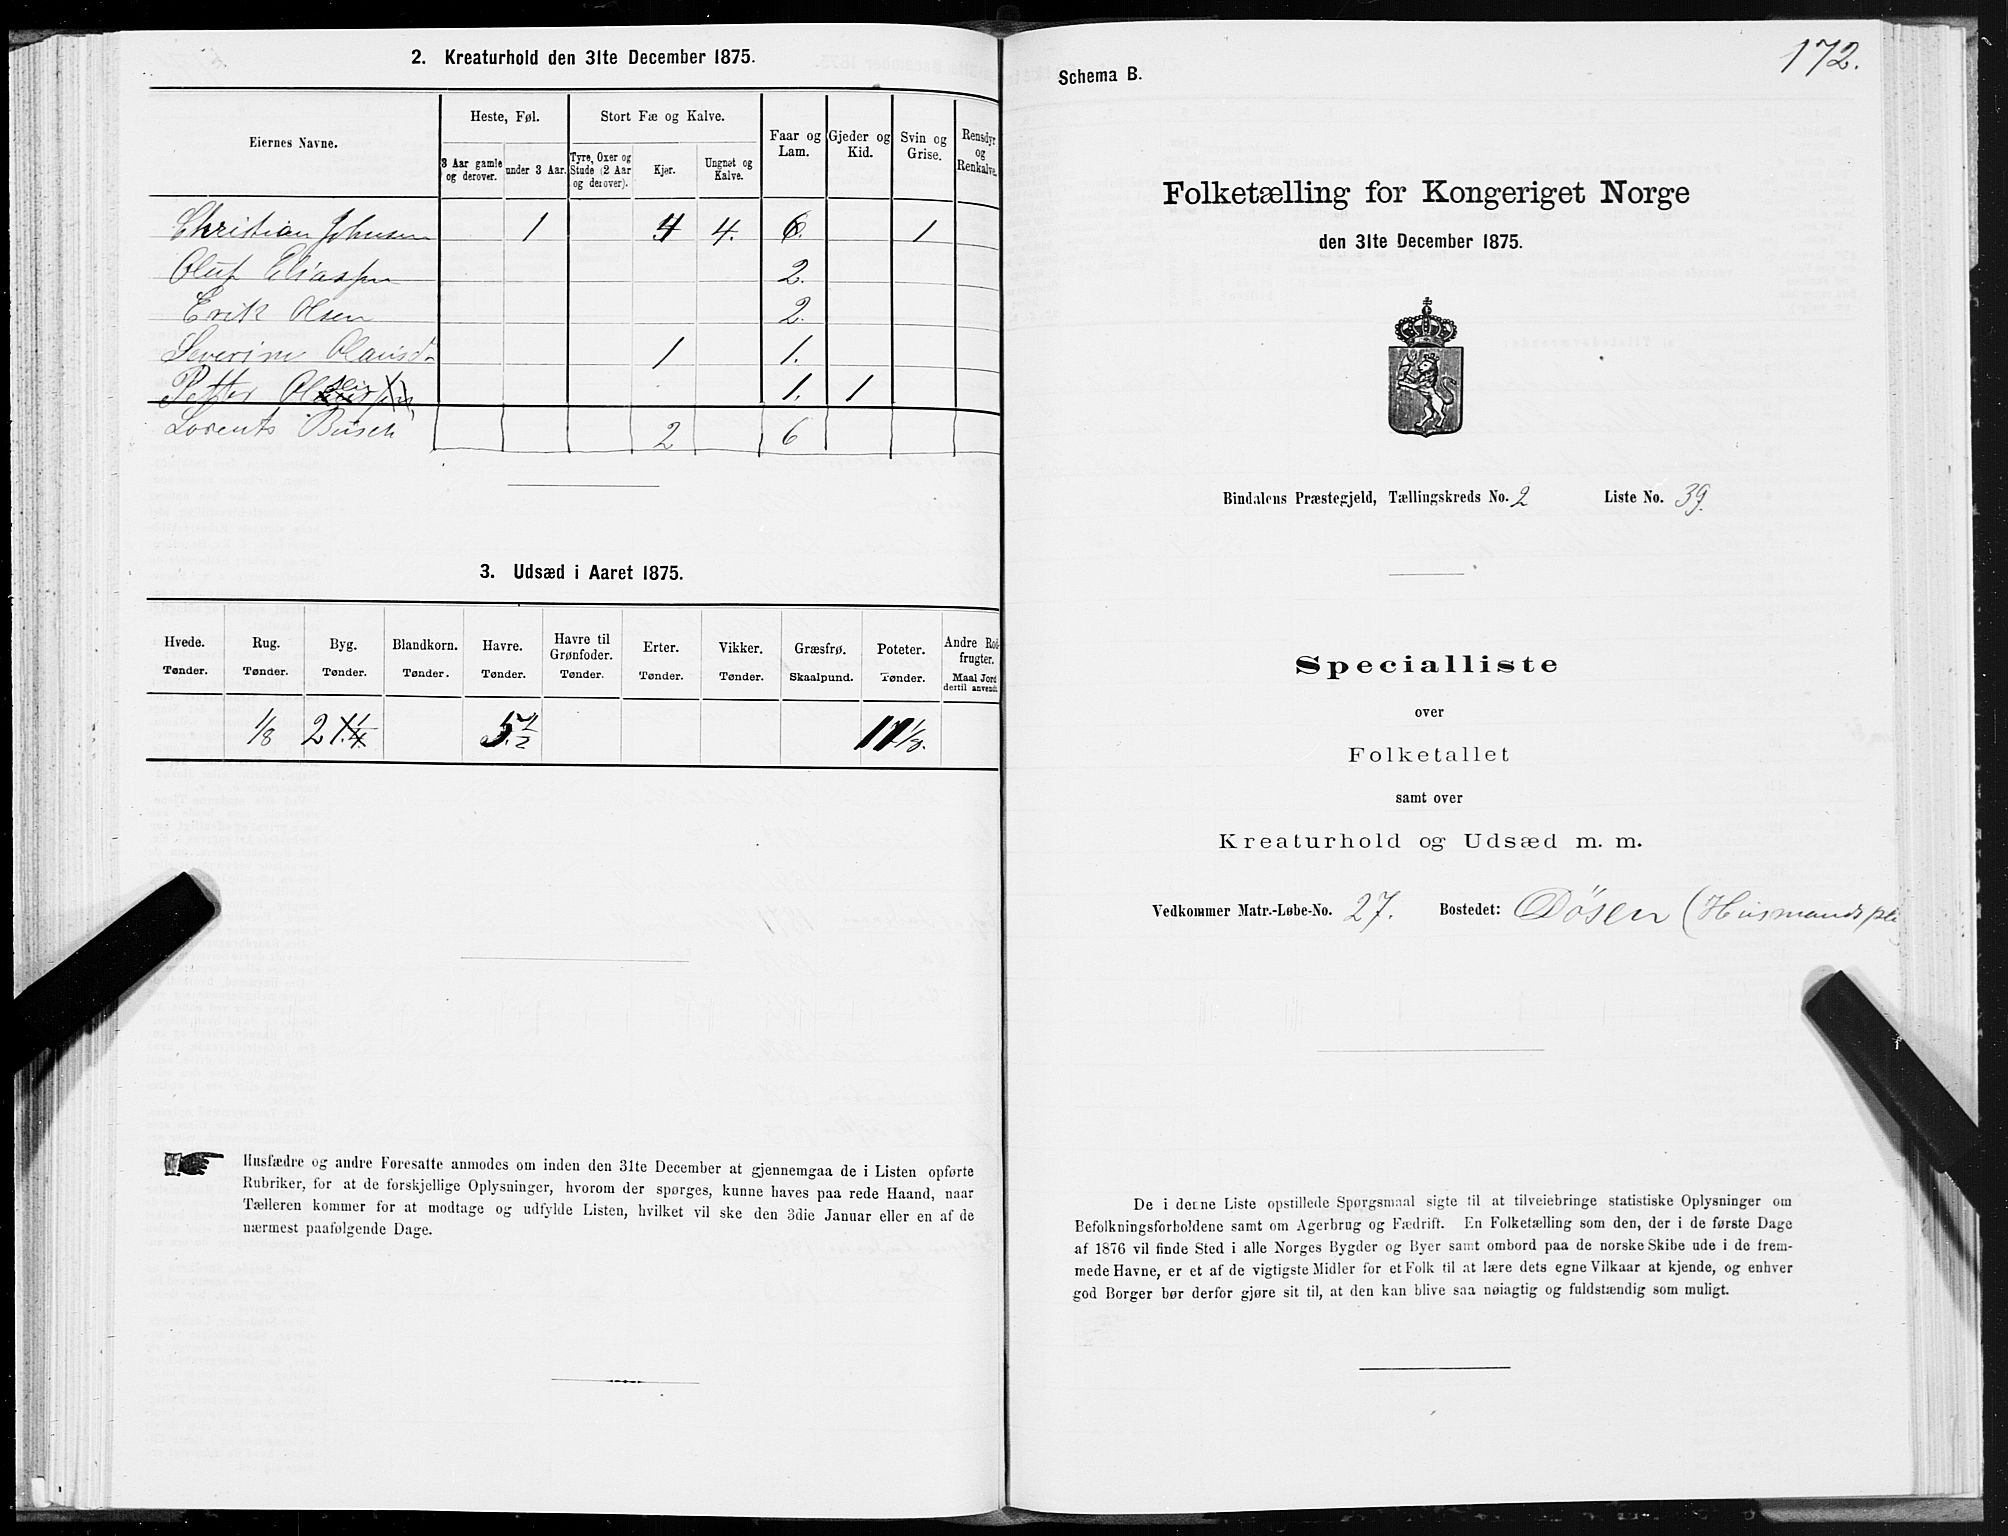 2. Kreaturhold den 31te December 1875.
Eiernes Navne.
Heste, Føl.
Stort Fæ og Kalve.
Faar og Lam.
Gjeder og Kid.
Svin og Grise.
Rensdyr og Renkalve.
3 Aar gamle og derover.
under 3 Aar.
Tyre, Oxer og Stude (2 Aar og derover).
Kjør.
Ungnøt og Kalve.
Christian Johnsen 1 4 4. 6. 1
Oluf Eliassen 2.
Erik Olsen 2.
Severine Olausd. 1 1.
Petter 1. 1
Lorents Busch 2 6
3. Udsæd i Aaret 1875.
Hvede. Tønder.
Rug. Tønder.
Byg. Tønder.
Blandkorn. Tønder.
Havre. Tønder.
Havre til Grønfoder. Tønder.
Erter. Tønder.
Vikker. Tønder.
Græsfrø. Skaalpund.
Poteter. Tønder.
Andre Rodfrugter. Maal Jord dertil anvendt.
1/8 2 5 1/2 1/8.
Husfædre og andre Foresatte anmodes om inden den 31te December at gjennemgaa de i Listen opførte
Rubriker, for at de forskjellige Oplysninger, hvorom der spørges, kunne haves paa rede Haand, naar
Tælleren kommer for at modtage og udfylde Listen, hvilket vil ske den 3die Januar eller en af de
nærmest paafølgende Dage.
172.
Schema B.
Folketælling for Kongeriget Norge
den 31te December 1875.
Bindalens Præstegjeld, Tællingskreds No. 2 Liste No. 39.
Specialliste
over
Folketallet
samt over
Kreaturhold og Udsæd m. m.
Vedkommer Matr.-Løbe-No. 27. Bostedet: Døsen (Husmandspl
De i denne Liste opstillede Spørgsmaal sigte til at tilveiebringe statistiske Oplysninger om
Befolkningsforholdene samt om Agerbrug og Fædrift. En Folketælling som den, der i de første Dage
af 1876 vil finde Sted i alle Norges Bygder og Byer samt ombord paa de norske Skibe ude i de frem-
mede Havne, er et af de vigtigste Midler for et Folk til at lære dets egne Vilkaar at kjende, og enhver
god Borger bør derfor gjøre sit til, at den kan blive saa nøiagtig og fuldstændig som muligt.